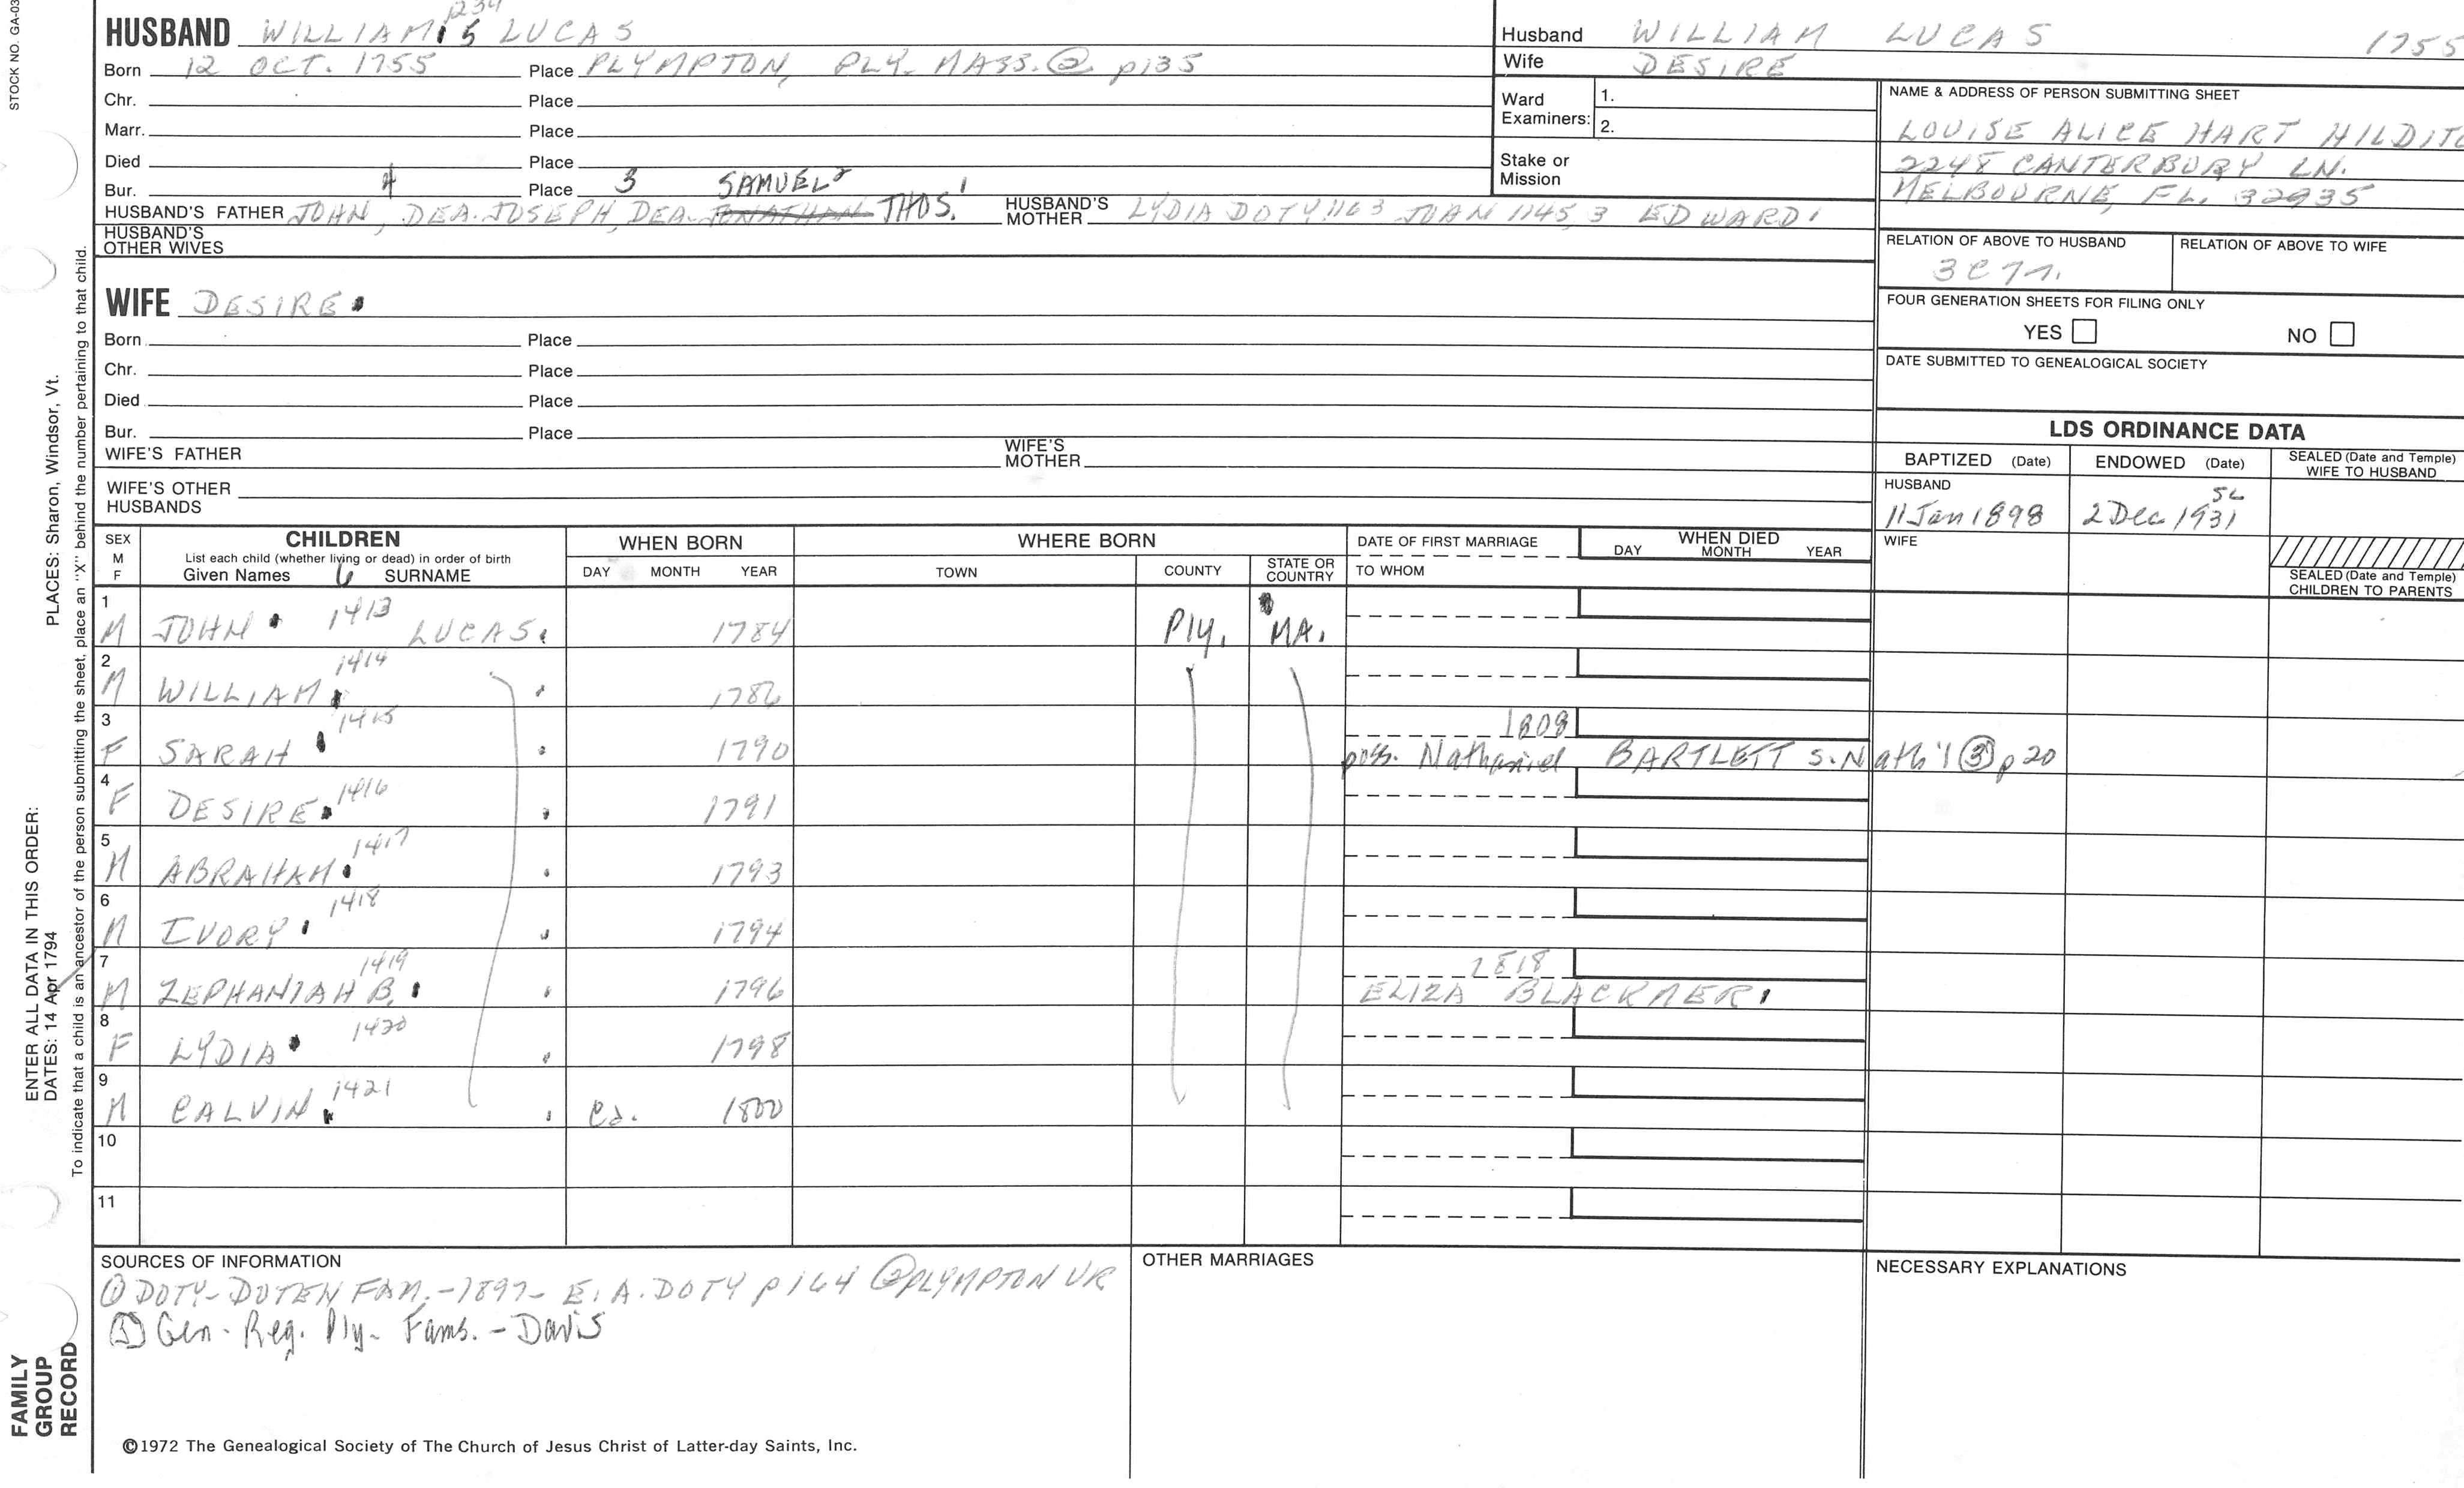 STOCK NO. GA-03
1234
HUSBAND WILLIAM 5 LUCAS
Born 12 OCT. 1755 Place PLYMPTON, PLY. MASS. ② p135
Chr. Place
Marr. Place
Died Place
Bur. 4 Place 3 SAMUEL 2
HUSBAND'S FATHER JOHN, DEA. JOSEPH, DEA. JONATHAN THOS. 1 HUSBAND'S MOTHER LYDIA DOTY 1163 JOHN 1145, 3 EDWARD 1
HUSBAND'S OTHER WIVES
Husband WILLIAM LUCAS 1755
Wife DESIRE
Ward Examiners: 1.
2.
Stake or Mission
NAME & ADDRESS OF PERSON SUBMITTING SHEET
LOUISE ALICE HART HILDITC
2248 CANTERBURY LN.
MELBOURNE, FL. 32935
RELATION OF ABOVE TO HUSBAND RELATION OF ABOVE TO WIFE
3C7r.
FOUR GENERATION SHEETS FOR FILING ONLY
YES NO
DATE SUBMITTED TO GENEALOGICAL SOCIETY
WIFE DESIRE
Born Place
Chr. Place
Died Place
Bur. Place
WIFE'S FATHER WIFE'S MOTHER
WIFE'S OTHER HUSBANDS
LDS ORDINANCE DATA
BAPTIZED (Date) ENDOWED (Date) SEALED (Date and Temple) WIFE TO HUSBAND
HUSBAND
11 Jan 1898 2 Dec 1931 SL
WIFE
SEALED (Date and Temple) CHILDREN TO PARENTS
SEX M F
CHILDREN
List each child (whether living or dead) in order of birth
Given Names 6 SURNAME
WHEN BORN DAY MONTH YEAR
WHERE BORN TOWN COUNTY STATE OR COUNTRY
DATE OF FIRST MARRIAGE TO WHOM
WHEN DIED DAY MONTH YEAR
1 M JOHN 1413 LUCAS. 1784 Ply. MA.
2 M WILLIAM 1414 1786
3 F SARAH 1415 1790 1808 poss. Nathaniel BARTLETT s. Nath'l ③ p 20
4 F DESIRE 1416 1791
5 M ABRAHAM 1417 1793
6 M IVORY 1418 1794
7 M ZEPHANIAH B. 1419 1796 1818 ELIZA BLACKMER
8 F LYDIA 1420 1798
9 M CALVIN 1421 ca. 1800
10
11
SOURCES OF INFORMATION
① DOTY-DOTEN FAM.-1897- E.A. DOTY p164 ② PLYMPTON VR
③ Gen. Reg. Ply. Fams. - Davis
OTHER MARRIAGES
NECESSARY EXPLANATIONS
©1972 The Genealogical Society of The Church of Jesus Christ of Latter-day Saints, Inc.
FAMILY GROUP RECORD
ENTER ALL DATA IN THIS ORDER:
DATES: 14 Apr 1794
PLACES: Sharon, Windsor, Vt.
To indicate that a child is an ancestor of the person submitting the sheet, place an "X" behind the number pertaining to that child.